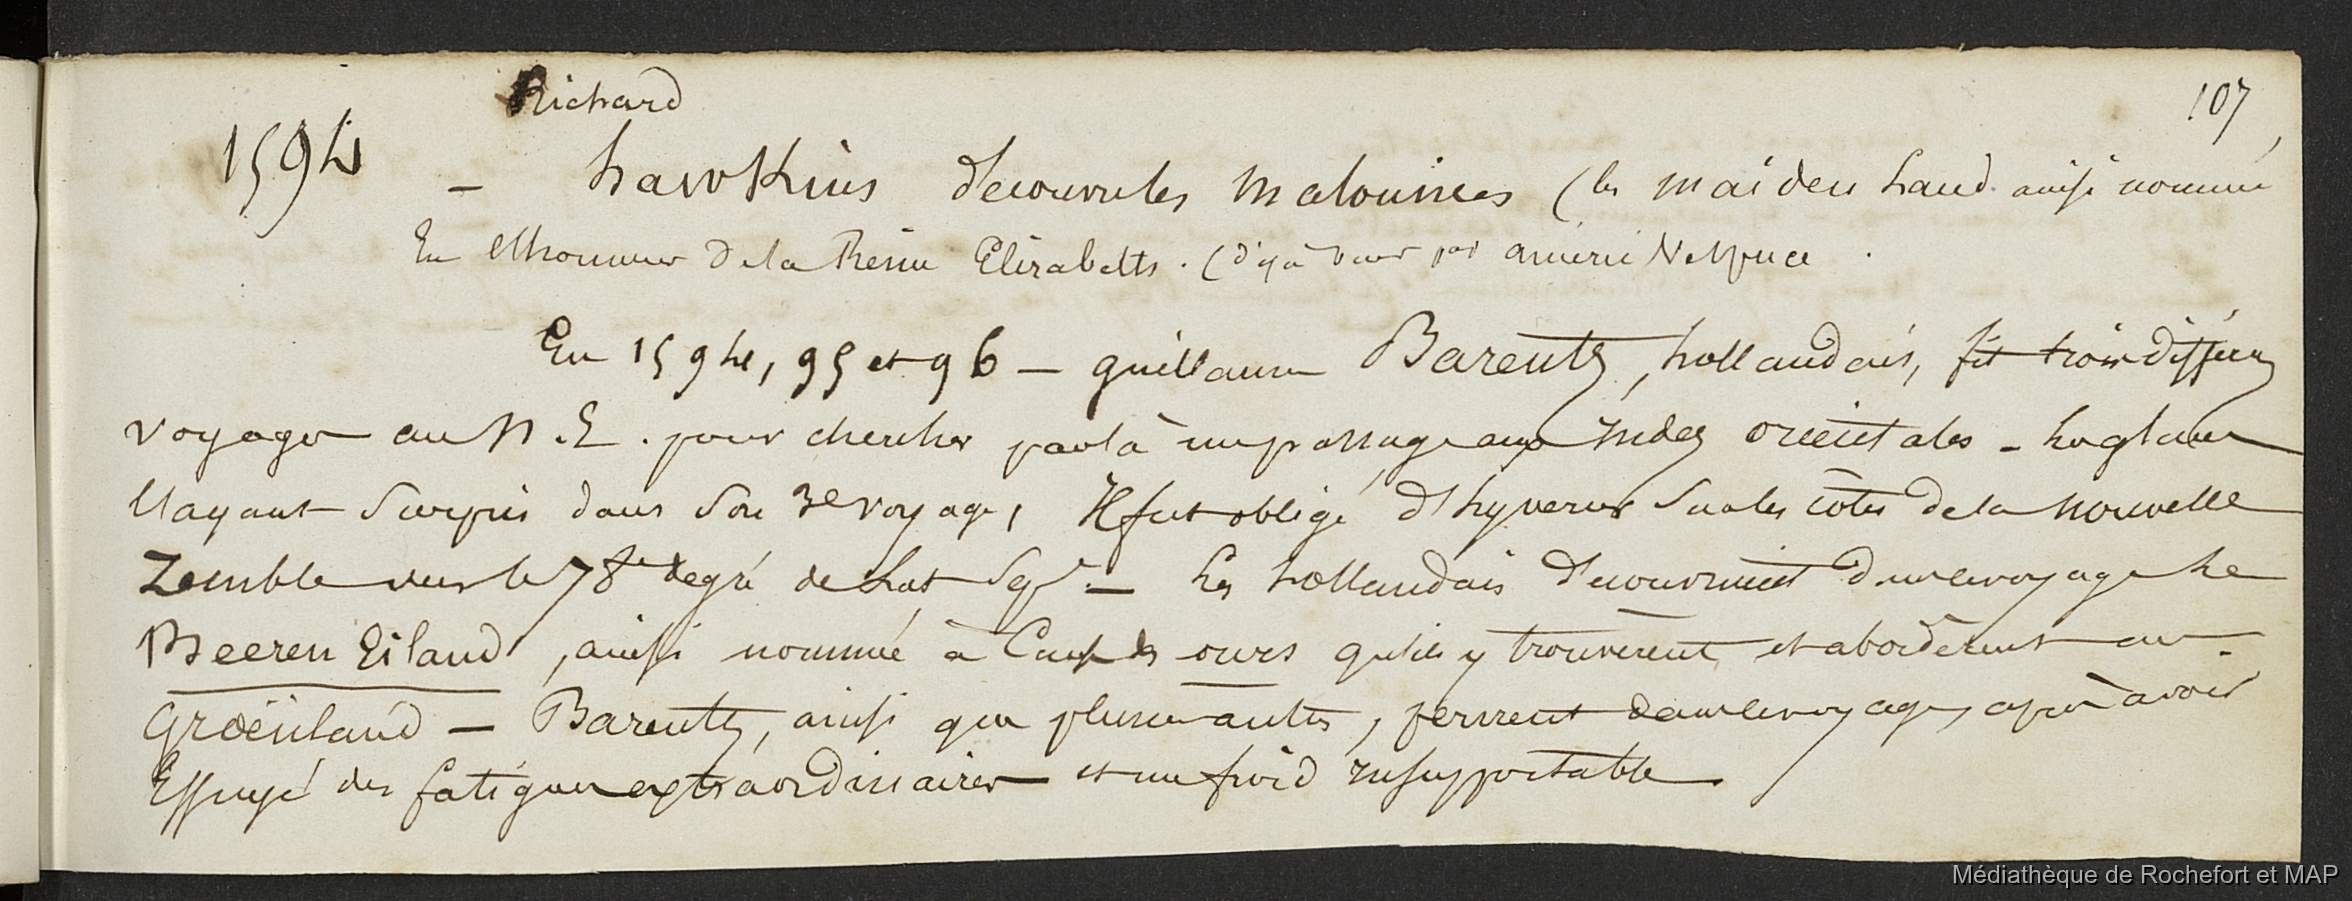 107
Richard
1594 - hawkins decouvre les Malouines (les maiden Land. ainsi nommé
En l'honneur de la Reine Elizabeth. (déja vues par améric Vespuce.
En 1594, 95 et 96 — guillaume Barentz, hollandais, fit trois différens
voyages au N.E. pour chercher par là un passage aux Indes orientales - les glaces
l'ayant surpris dans son 3e voyage, il fut obligé d'hyverner sur les côtes de la nouvelle
Zemble vers le 78e degré de Lat Sepe — Les hollandais decouvrirent dans ce voyage he
Beeren Eiland, ainsi nommée à Cause des ours qu'ils y trouverent, et aborderent au
Groënland — Barentz, ainsi que plusieurs autres, perirent dans ce voyage, après avoir
Essuyé des fatigues extraordinaires et un froid insupportable.
Médiathèque de Rochefort et MAP